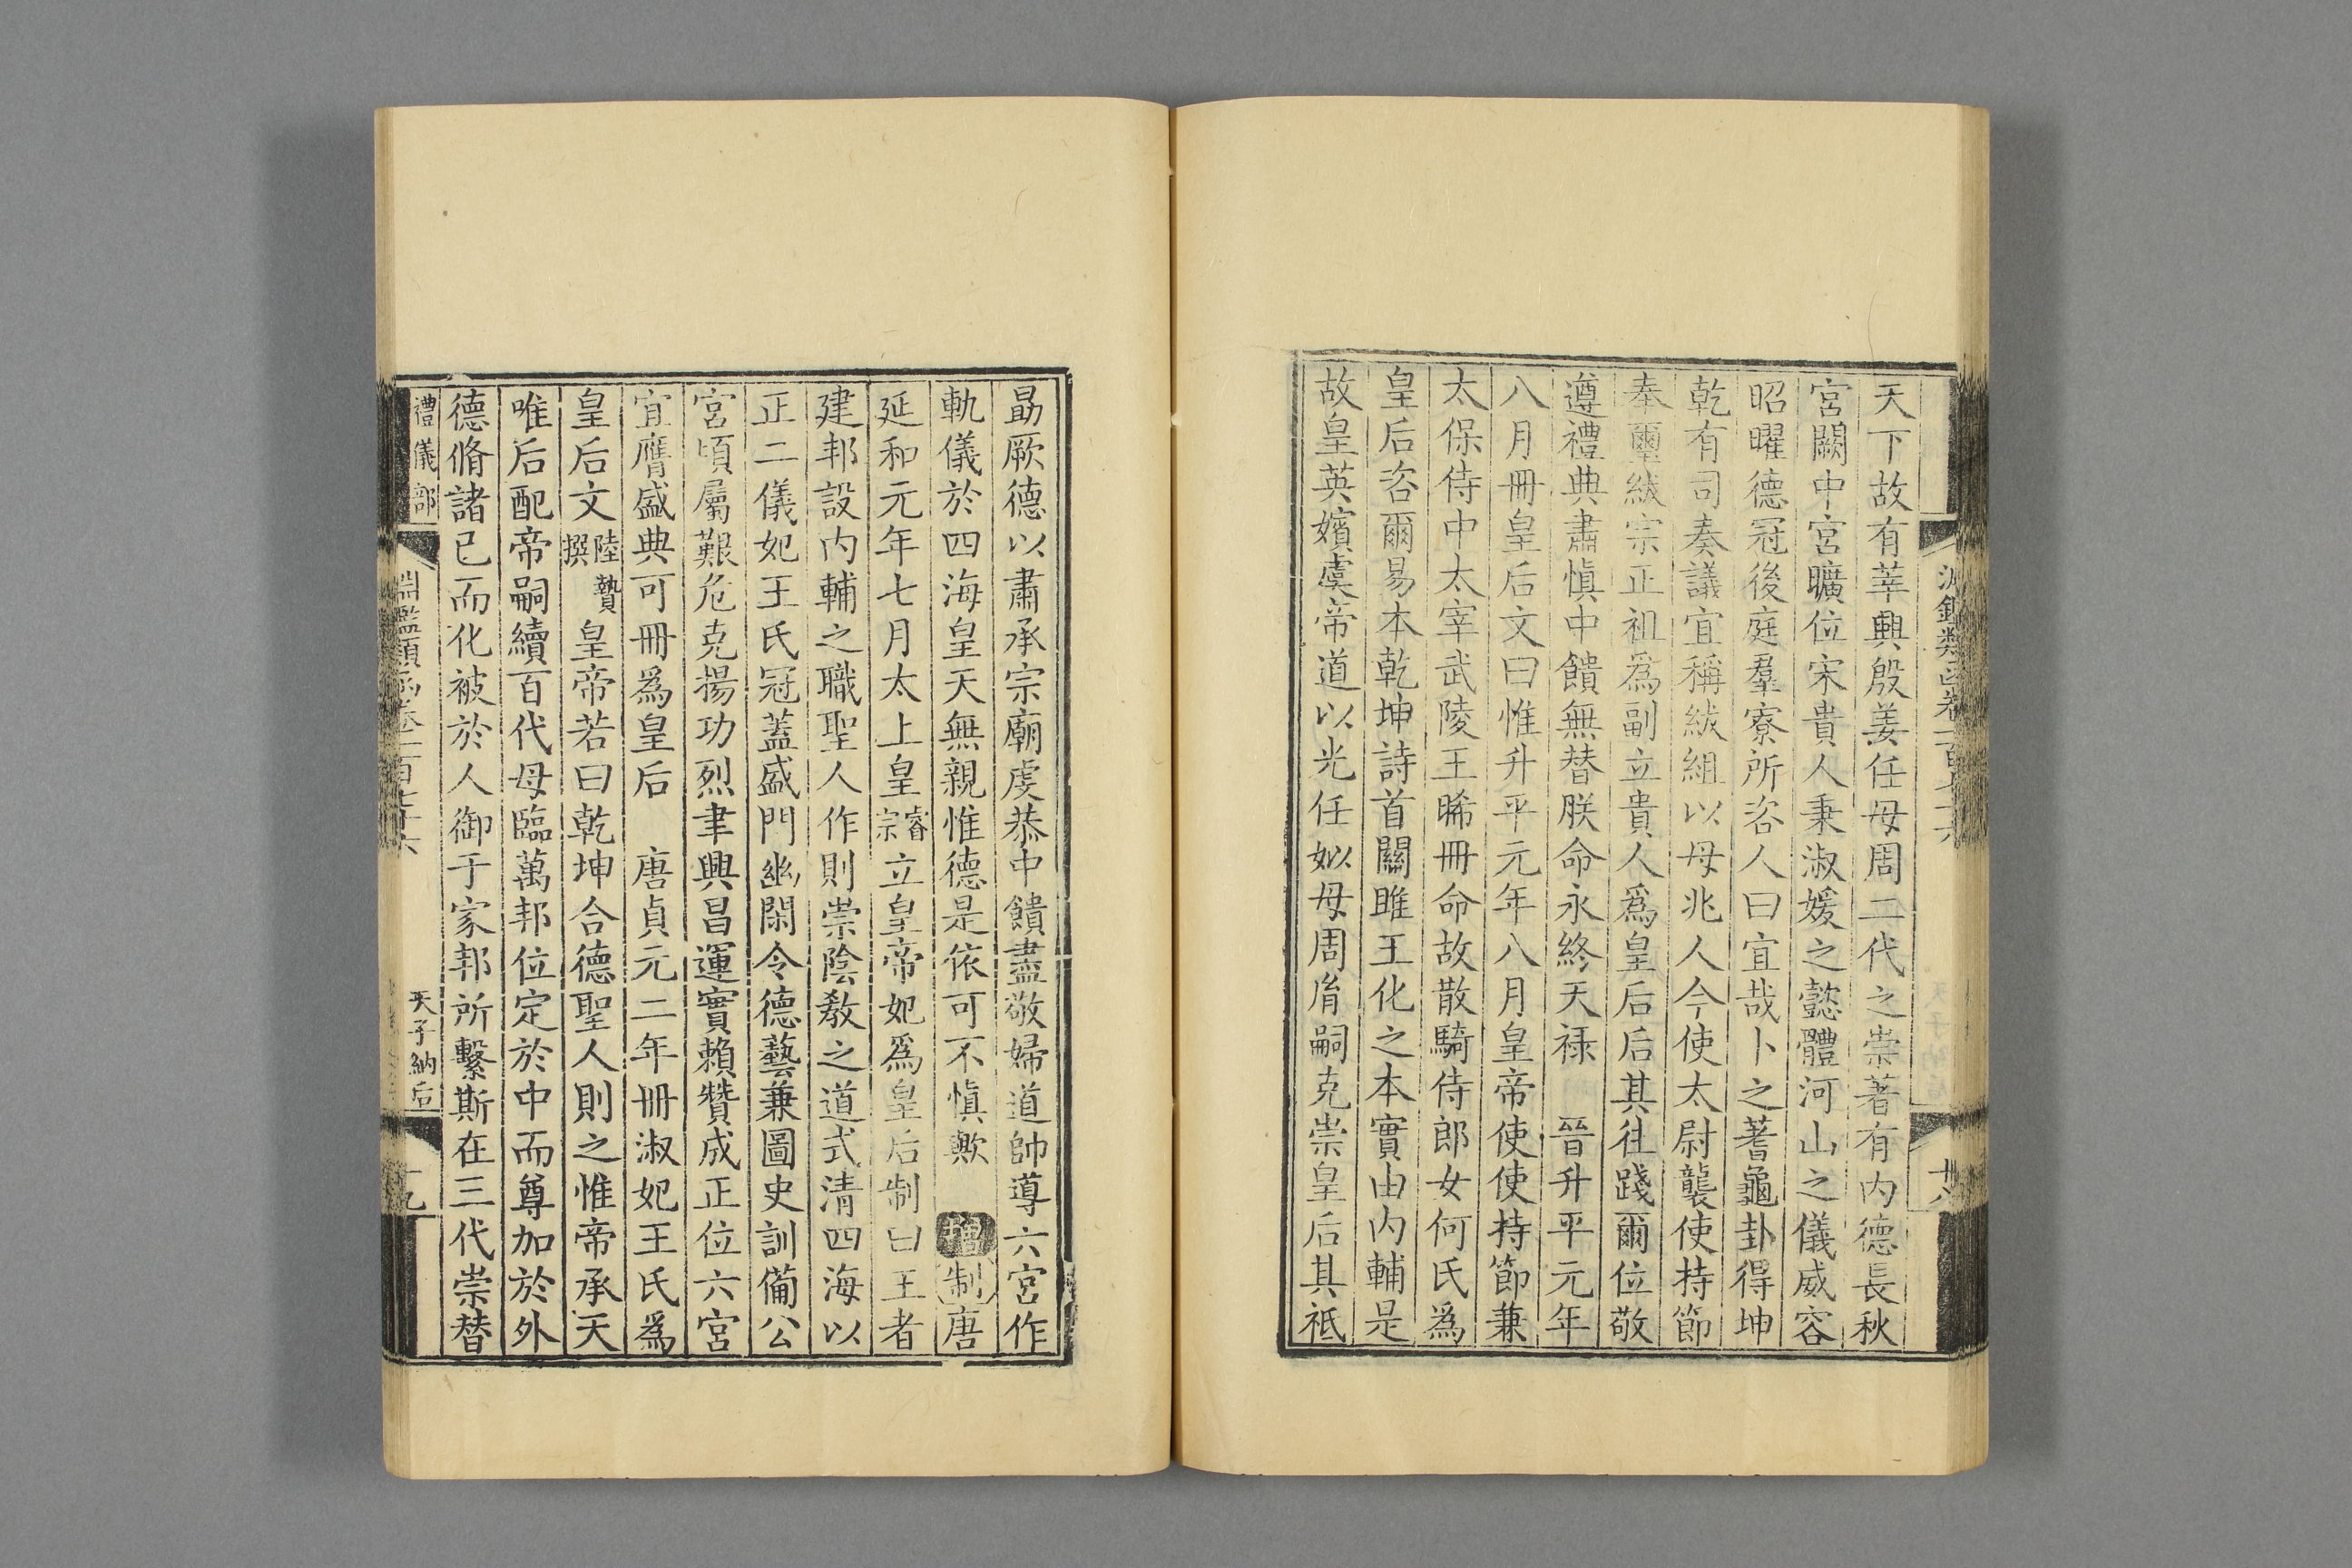 天下故有莘興殷姜任母周二代之崇著有內德長秋
宮闕中宮曠位宋貴人秉淑媛之懿體河山之儀威容
昭曜德冠後庭羣寮所咨人曰宜哉卜之蓍龜卦得坤
乾有司奏議宜稱紱組以母兆人今使太尉襲使持節
奉璽紱宗正祖爲副立貴人爲皇后后其往踐爾位敬
遵禮典肅慎中饋無替朕命永終天祿　晉升平元年
八月冊皇后文曰惟升平元年八月皇帝使使持節兼
太保侍中太宰武陵王晞冊命故散騎侍郎女何氏爲
皇后咨爾易本乾坤詩首關雎王化之本實由內輔是
故皇英嬪虞帝道以光任姒母周胤嗣克崇皇后其祗
勗厥德以肅承宗廟虔恭中饋盡敬婦道帥導六宮作
軌儀於四海皇天無親惟德是依可不慎歟　增制唐
延和元年七月太上皇睿宗立皇帝妃爲皇后制曰王者
建邦設內輔之職聖人作則崇陰教之道式清四海以
正二儀妃王氏冠蓋盛門幽閑令德藝兼圖史訓備公
宮頃屬艱危克揚功烈聿興昌運實賴贊成正位六宮
宜膺盛典可冊爲皇后　唐貞元二年冊淑妃王氏爲
皇后文陸贄撰皇帝若曰乾坤合德聖人則之惟帝承天
唯后配帝嗣續百代母臨萬邦位定於中而尊加於外
德脩諸己而化被於人御于家邦所繫斯在三代崇替
禮儀部　淵鑑類函卷一百七十六　天子納后